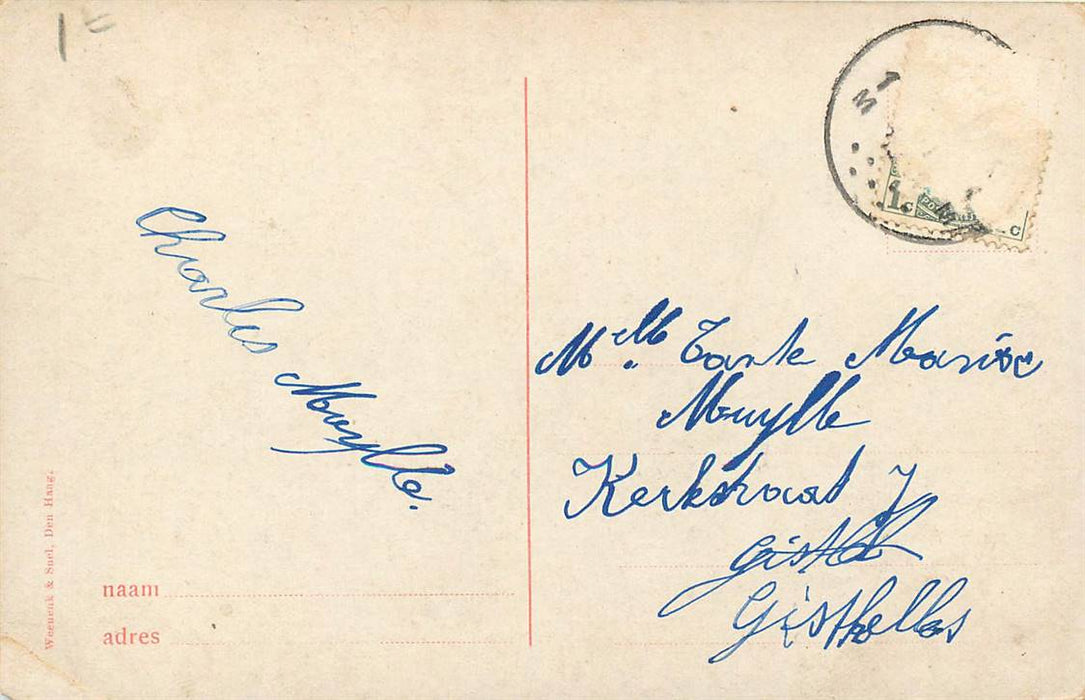 1=
Charles Muylle.
Weenenk & Snel, Den Haag.
naam
adres
1
1c
c
Melle Tante Marie
Muylle
Kerkstraat 7
Gistel
Gisthelles